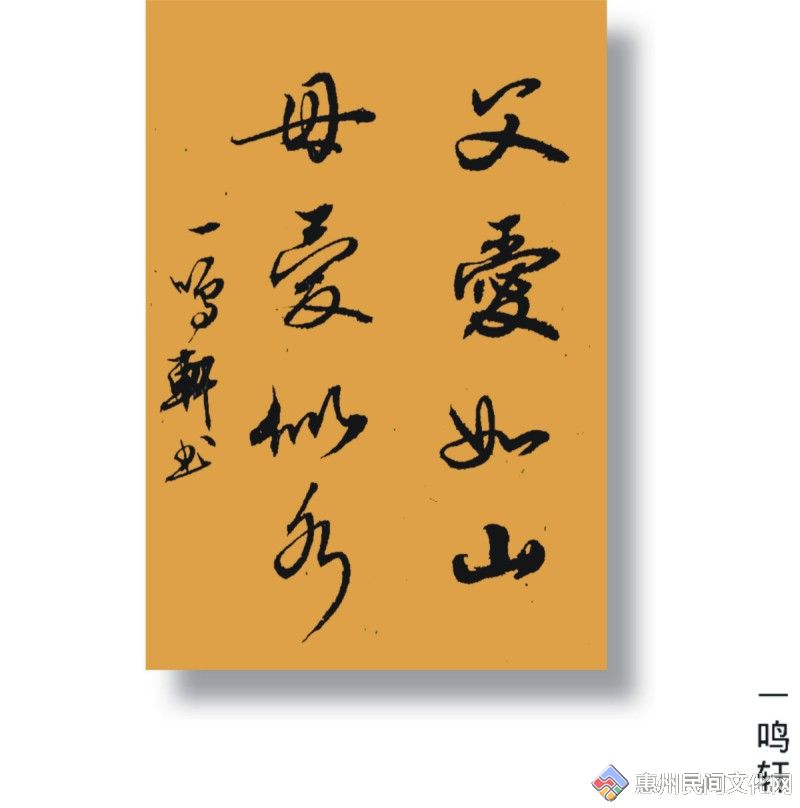 父愛如山
母爱似水
一鸣軒书
一鸣轩
惠州民间文化网